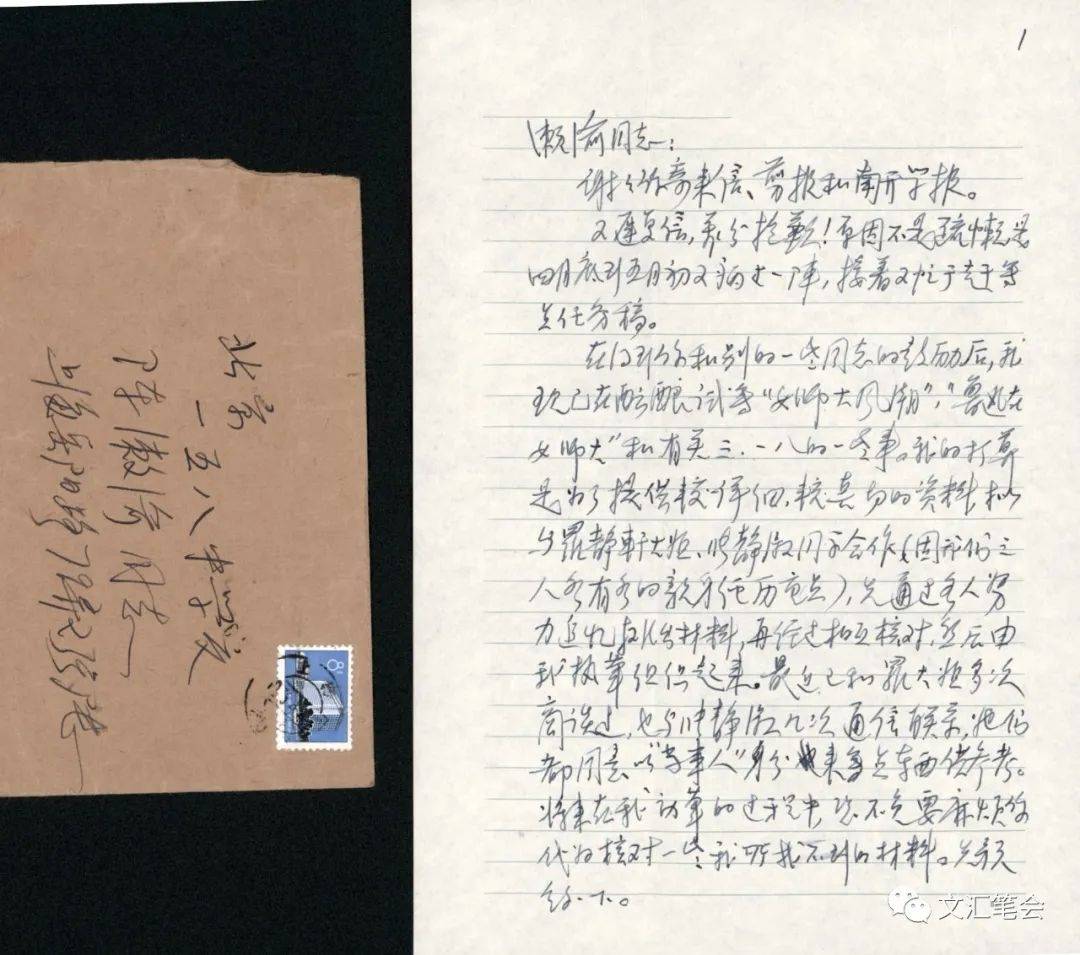 1
漱渝同志：
谢谢你寄来信、剪报和南开学报。
又迟复信，万分抱歉！原因不是疏懒是
四月底到五月初又病了一阵，接着又忙于赶写
点任务稿。
在得到你和别的一些同志的鼓励后，我
现已在酝酿试写“女师大风潮”，“鲁迅在
女师大”和有关三·一八的一些事。我的打算
是为了提供较详细，较真切的资料拟
与罗静轩大姐、静淑同志合作（因我们三
人各有各的亲身经历重点），先通过各人努
力追忆材料，再经过相互核对，然后由
我执笔组织起来。最近已和罗大姐多次
商谈过，也与静淑几次通信联系，她们
都同意以“当事人”身份来写点东西供参考。
将来在我动笔的过程中，恐不免要麻烦你
代为核对一些我所找不到的材料。先预
约一下。
北京
一五八中学
陈漱渝同志
上海
8
文汇笔会